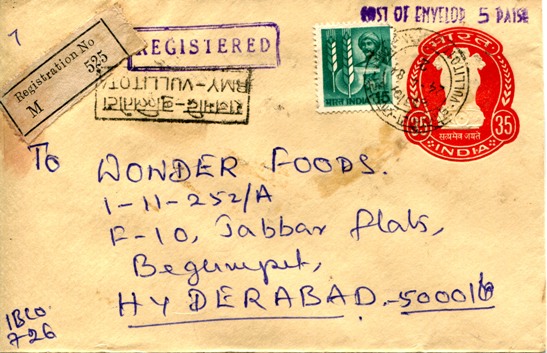 7
COST OF ENVELOP 5 PAISE
REGISTERED
Registration No
M 525
RMY-VULLITOTA
भारत INDIA 15
भारत
35 35
सत्यमेव जयते
INDIA
To
WONDER FOODS.
1-11-252/A
F-10, Jabbar flats,
Begumpet,
HYDERABAD.-500016
IBCO
726